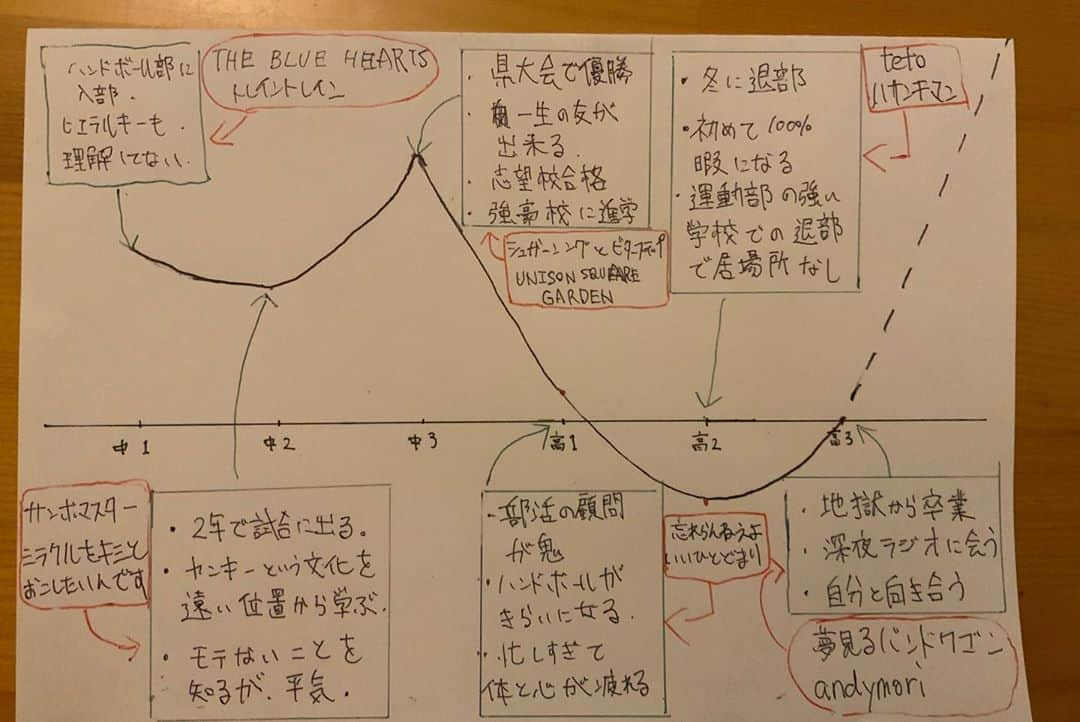 ハンドボール部に
入部.
ヒエラルキーも.
理解してない.
THE BLUE HEARTS
トレイントレイン
・県大会で優勝
・一生の友が
出来る.
・志望校合格
・強高校に進学
シュガーソングとビターステップ
UNISON SQUARE
GARDEN
・冬に退部
・初めて100%
暇になる
・運動部の強い
学校での退部
で居場所なし
teto
ハイサンキマン
中1
中2
中3
高1
高2
高3
サンボマスター
ミラクルをキミと
おこしたいんです
・2年で試合に出る.
・ヤンキーという文化を
遠い位置から学ぶ.
・モテないことを
知るが、平気.
・部活の顧問
が鬼
・ハンドボールが
きらいになる.
・忙しすぎて
体と心が疲れる
忘れらんねえよ
いいひとどまり
・地獄から卒業
・深夜ラジオに会う
・自分と向き合う
夢見るバンドワゴン
andymori